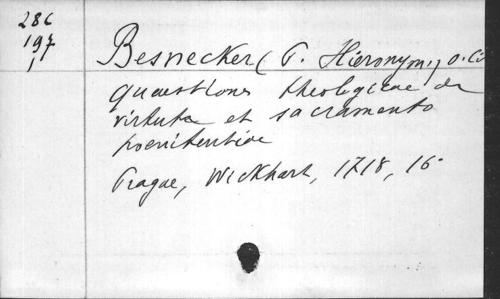 286
197
1
Besnecker (P. Hieronym.) O. Ci
quaestiones theologicae de
virtute et sacramento
poenitentiae
Pragae, Wickhart, 1718, 16-